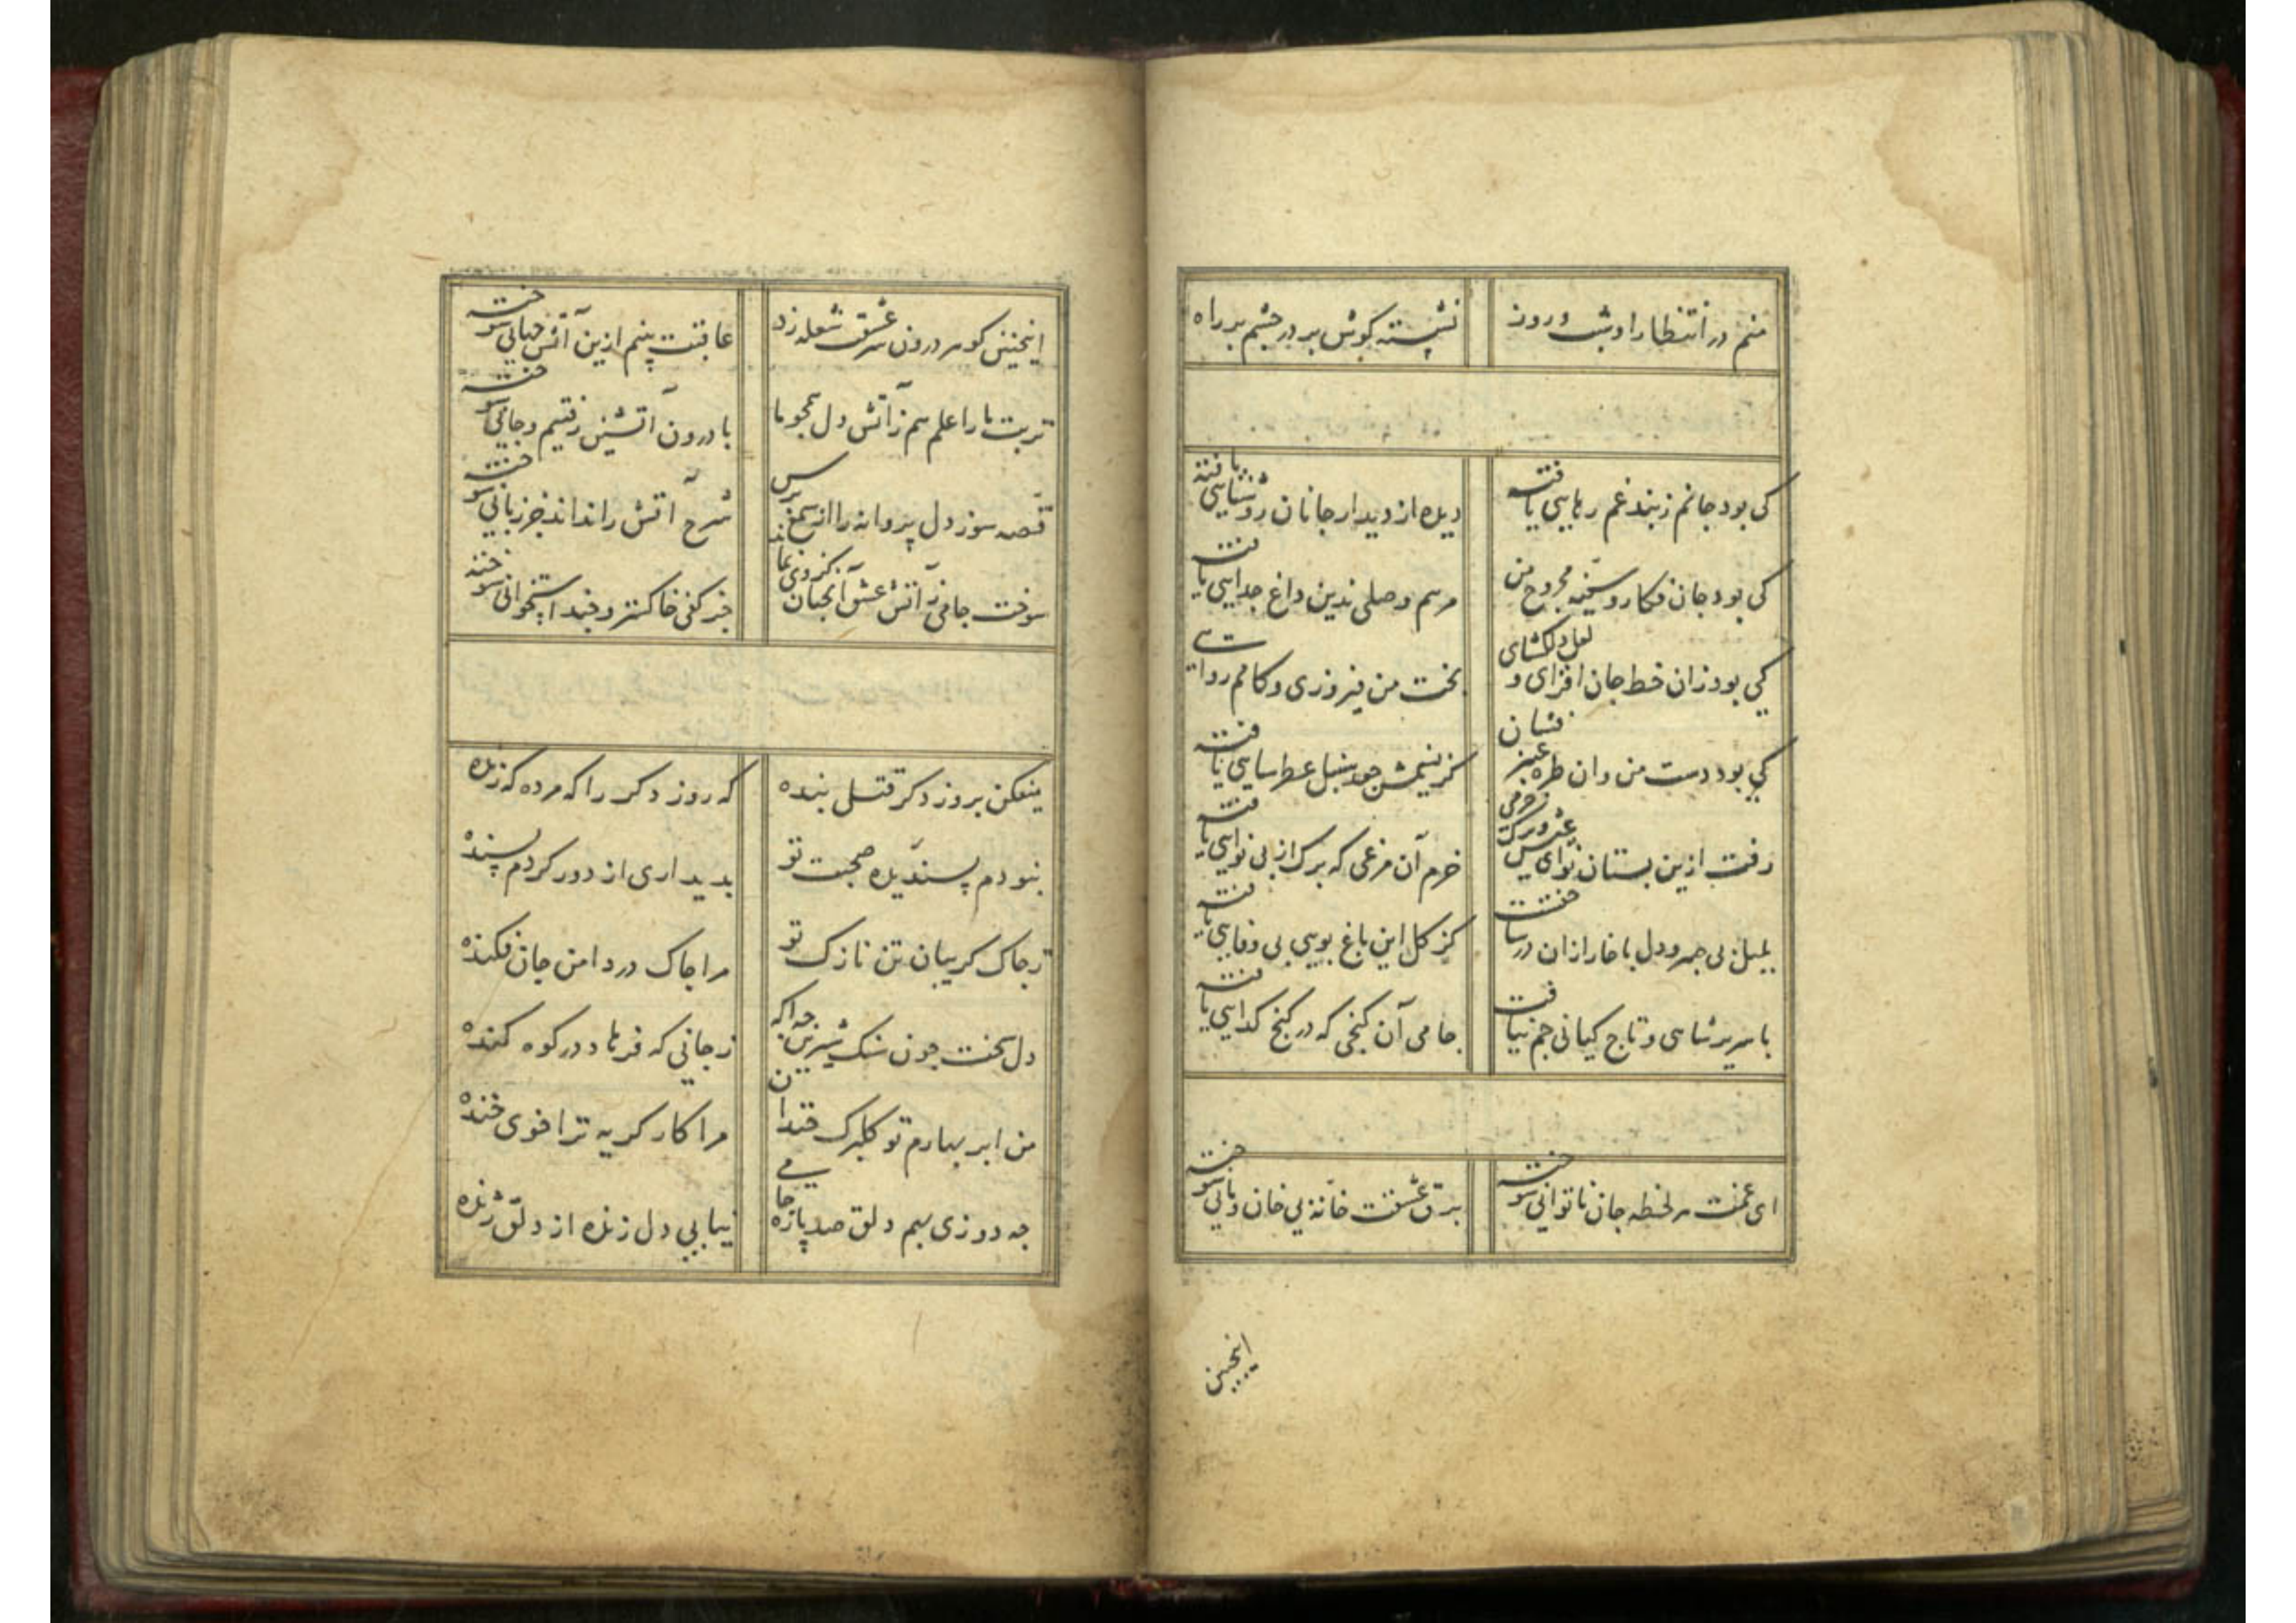 منم در انتظار او شب و روز نشسته گوش بر در چشم بر راه
کی بود جانم زبند غم رهایی یافته دیده از دیدار جانان روشنایی یافته
کی بود جان فکار و سینه مجروح من مرهم وصلی بدین داغ جدایی یافته
کی بود زان خط جان افزای و لعل دلکشای بخت من فیروزی و کامم روایی یافته
کی بود دست من و ان طره عنبر فشان کز نسیمش جو سنبل عطرسایی یافته
رفت ازین بستان نوای عیش و برک خرمی خرم آن مرغی که برک از بی نوایی یافته
بلبل بی مهر و دل با خار ازان در ساخت کز کل این باغ بویی بی وفایی یافته
با سریر شاهی و تاج کیانی جم نیافت جامی آن کنجی که در کنج کدایی یافته
ای غمت هر لحظه جان ناتوانی سوخته برق عشقت خانه بی خان و مانی سوخته
اینچنین
اینچنین کز هر درون عشق شعله زد عاقبت بینم ازین آتش جهانی سوخته
تربت ما را علم هم ز آتش دل همچو ما با درون آتشین رفتیم و جانی سوخته
قصه سوز دل پروانه را از شمع پرس شرح آتش را نداند جز زبانی سوخته
سوخت جامی ز آتش عشق آنجنان کز وی نماند جز کفی خاکستر و چند استخوانی سوخته
میفکن بروز دکر قتل بنده که روز دکر را که مرده که زنده
نبودم پسندیده صحبت تو بدیداری از دور کردم بسنده
ز جاک کریبان تن نازک تو مرا جاک در دامن جان فکنده
دل سخت جون سنک شیرین جه آکه ز جانی که فرهاد در کوه کنده
من ابر بهارم تو کلبرک خندان مرا کار کریه ترا خوی خنده
جه دوزی بهم دلق صد پاره جامی نیابی دل زنده از دلق ژنده